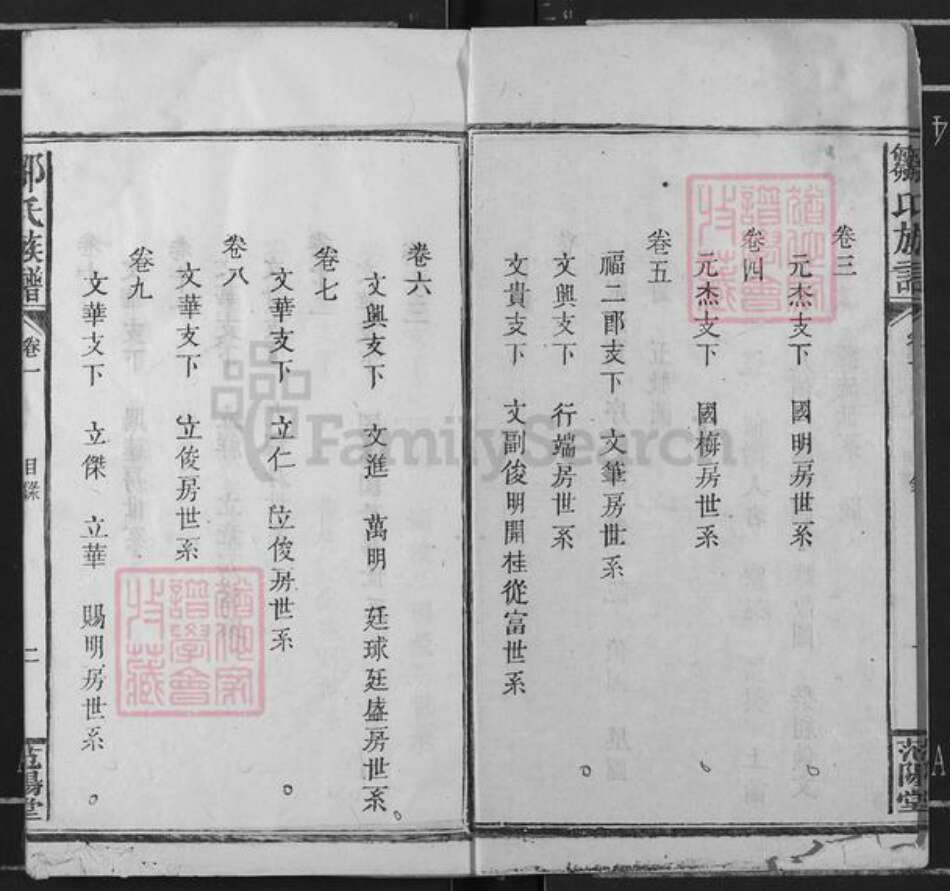 卷三
元杰支下 國明房世系
卷四
元杰支下 國梅房世系
卷五
福二郎支下序 文筆房世系
文興支下 行端房世系
文貴支下 文副俊明開桂從富世系
范陽堂
卷六
文興支下 文進 萬明 廷球廷盛房世系
卷七
文華支下 立仁 立俊房世系
卷八
文華支下 立俊房世系
卷九
文華支下 立傑 立華 賜明房世系
鄒氏族譜 卷一 目錄 二 范陽堂
FamilySearch